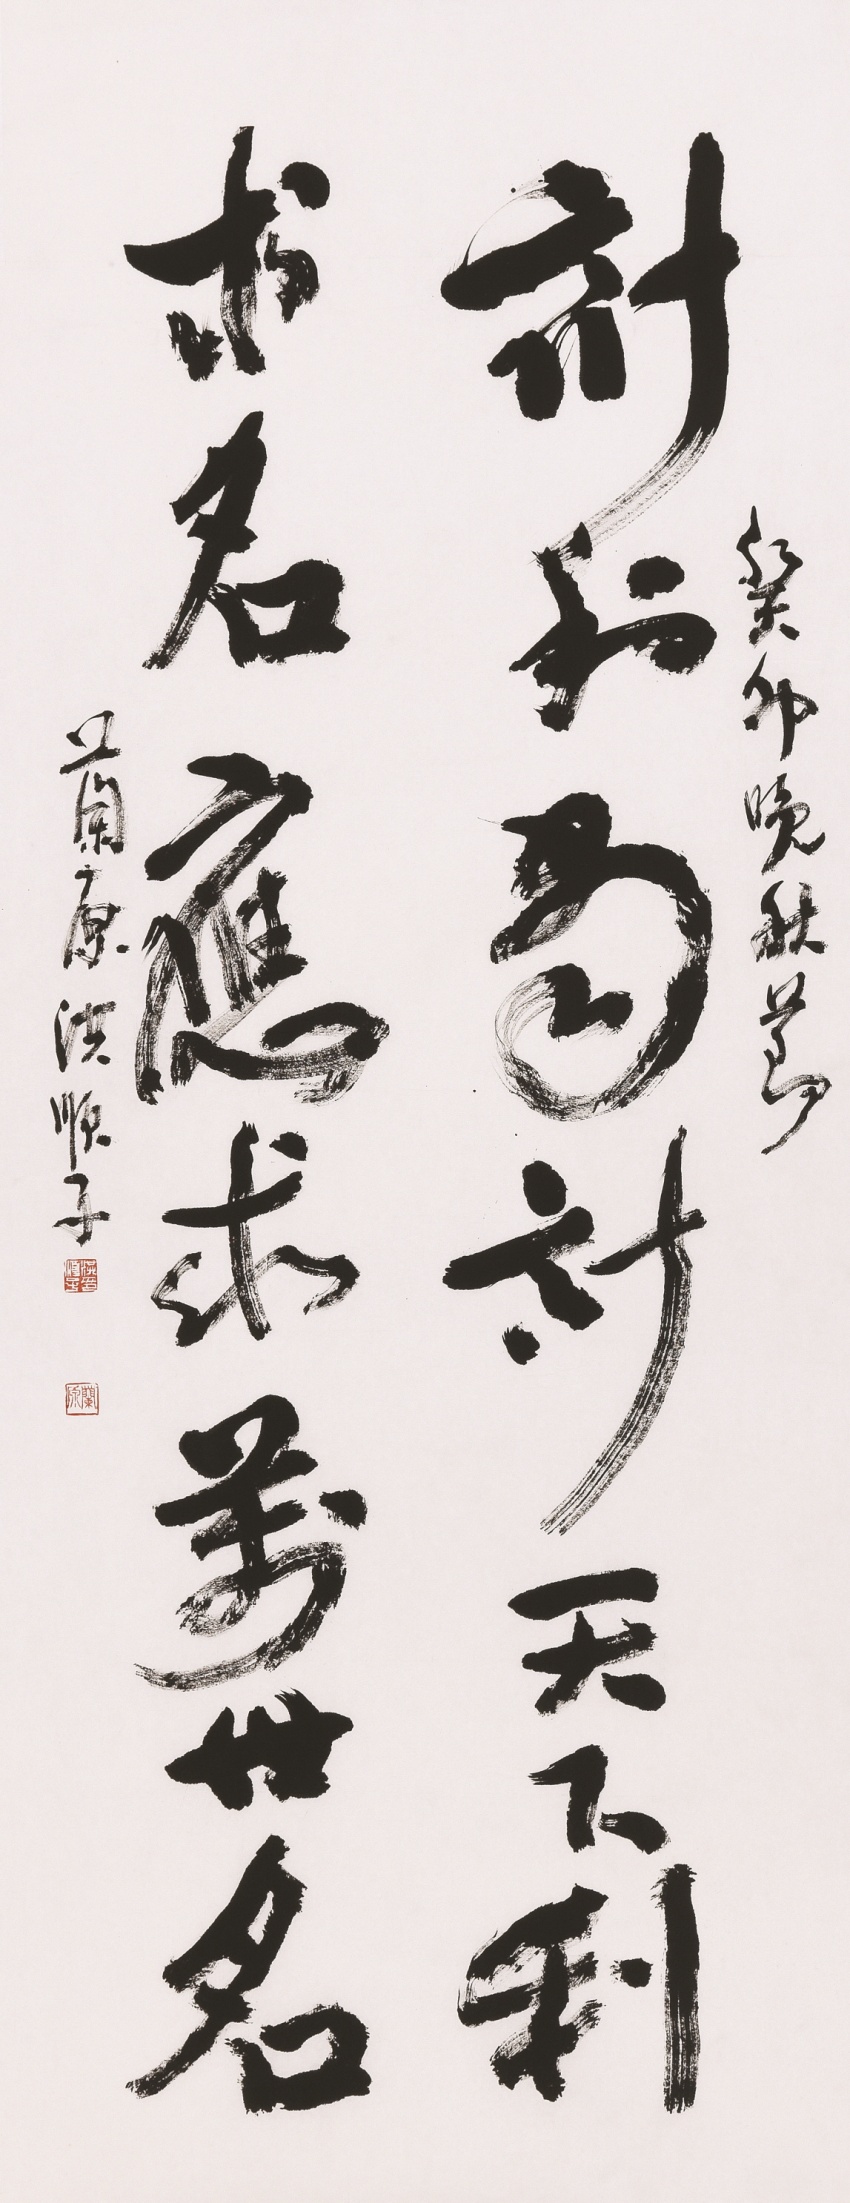 癸卯晩秋節
計利當計天下利
求名應求萬世名
蘭原洪順子